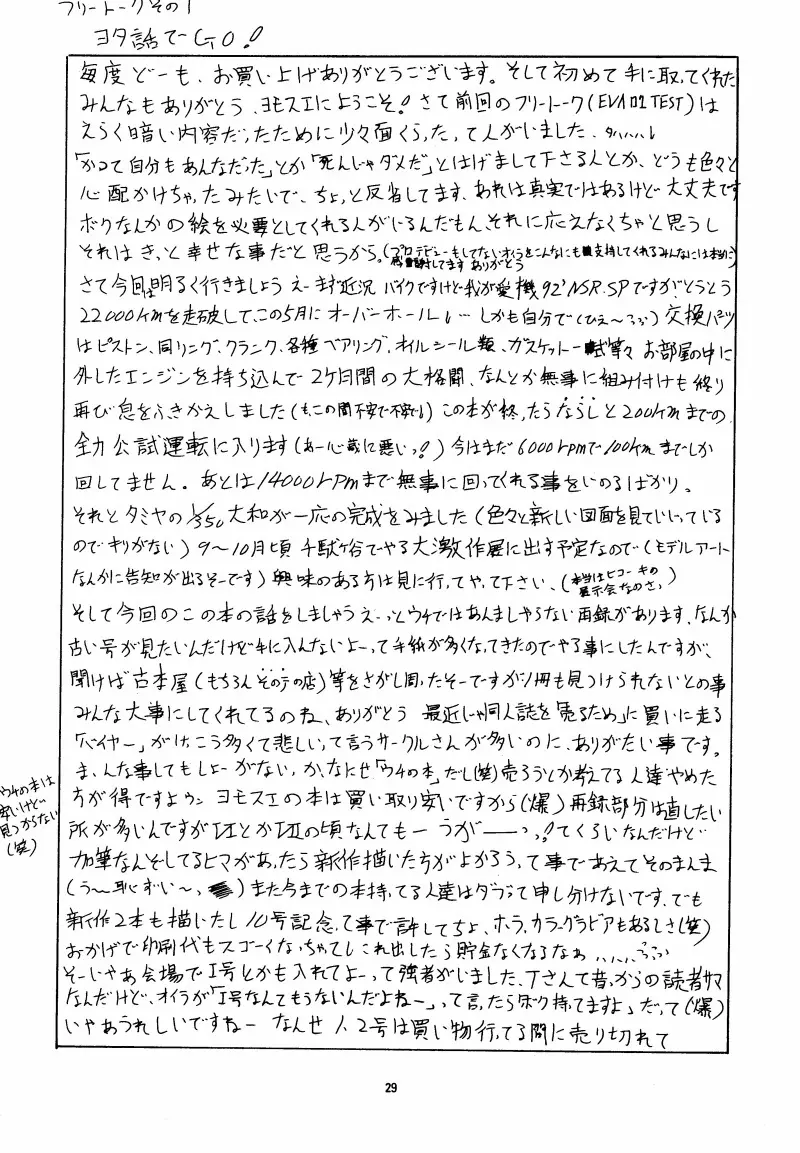 フリートークその1
ヨタ話でGO!
毎度どーも、お買い上げありがとうございます。そして初めて手に取ってくれた
みんなもありがとう、ヨモスエにようこそ!さて前回のフリートーク(EVA 02 TEST)は
えらく暗い内容だったために少々面くらったって人がいました、タハハハ、、
「かつて自分もあんなだった」とか「死んじゃダメだ」とはげまして下さる人とか、どうも色々と
心配かけちゃったみたいで、ちょっと反省してます、あれは真実ではあるけど大丈夫です
ボクなんかの絵を必要としてくれる人がいるんだもん、それに応えなくちゃと思うし
それはきっと幸せな事だと思うから。(プロデビューもしてないオイラをこんなにも支持してくれるみんなには本当に
感謝してます ありがとう
さて今回は明るく行きましょう えーまず近況 バイクですけど我が愛機92'NSR.SPですがとうとう
22000kmを走破して、この5月にオーバーホールし… しかも自分で(ひえ〜ふふ)交換パーツ
はピストン、同リング、クランク、各種ベアリング、オイルシール類、ガスケット一式等々 お部屋の中に
外したエンジンを持ち込んで2ケ月間の大格闘、なんとか無事に組み付けも終り
再び息をふきかえしました(もこの間不安で不安で)この本が終ったらならしと200kmまでの
全力公試運転に入ります(あー心臓に悪いっ!)今はまだ6000rpmで100kmまでしか
回してません。あとは14000rpmまで無事に回ってくれる事をいのるばかり。
それとタミヤの1/350大和が一応の完成をみました(色々と新しい図面を見ていじっている
のでキリがない)9〜10月頃 千駄ヶ谷でやる大激作展に出す予定なので(モデルアート
なんかに告知が出るそーです)興味のある方は見に行ってやって下さい、(本当はヒコーキの
展示会なのさっ)
そして今回のこの本の話をしましゃう えーっとウチではあんましやらない再録があります、なんか
古い号が見たいんだけど手に入んないよーって手紙が多くなってきたのでやる事にしたんですが、
聞けば古本屋(もちろんその手の店)等をさがし周ったそーですが1冊も見つけられないとの事
みんな大事にしてくれてるのね、ありがとう 最近じゃ同人誌を「売るため」に買いに走る
「バイヤー」がけっこう多くて悲しいって言うサークルさんが多いのに、ありがたい事です。
ま、んな事してもしょーがないっか、なにせ「ウチの本」だし(笑)売ろうとか考えてる人達やめた
方が得ですよゥン ヨモスエの本は買い取り安いですから(爆)再録部分は直したい
ウチの本は
安いけど
見つからない
(笑)
所が多いんですがⅠⅡとかⅠⅢの頃なんてもー うがーーっっ!てくらいなんだけど
加筆なんぞしてるヒマがあったら新作描いたちがよかろうって事であえてそのまんま
(う〜恥ずい〜っ)また今までの本持ってる人達はダブって申し分けないです、でも
新作2本も描いたし10号記念って事で許してちょ、ホラ、カラーグラビアもあるしさ(笑)
おかげで印刷代もスゴーくなっちゃてしこれ出したら貯金なくなるなぁ……ふふ
そーいやあ会場で1号とかも入れてよーって強者がいました、Tさんて昔っからの読者サマ
なんだけど、オイラが「1号なんてもうないんだよねー」って言ったらボク持てますよ」だって(爆)
いやあうれしいですねー なんせ1、2号は買い物行ってる間に売り切れて
29